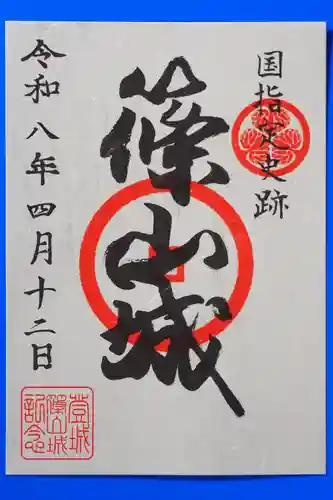 国指定史跡
篠山城
令和八年四月十二日
登城
篠山城
記念